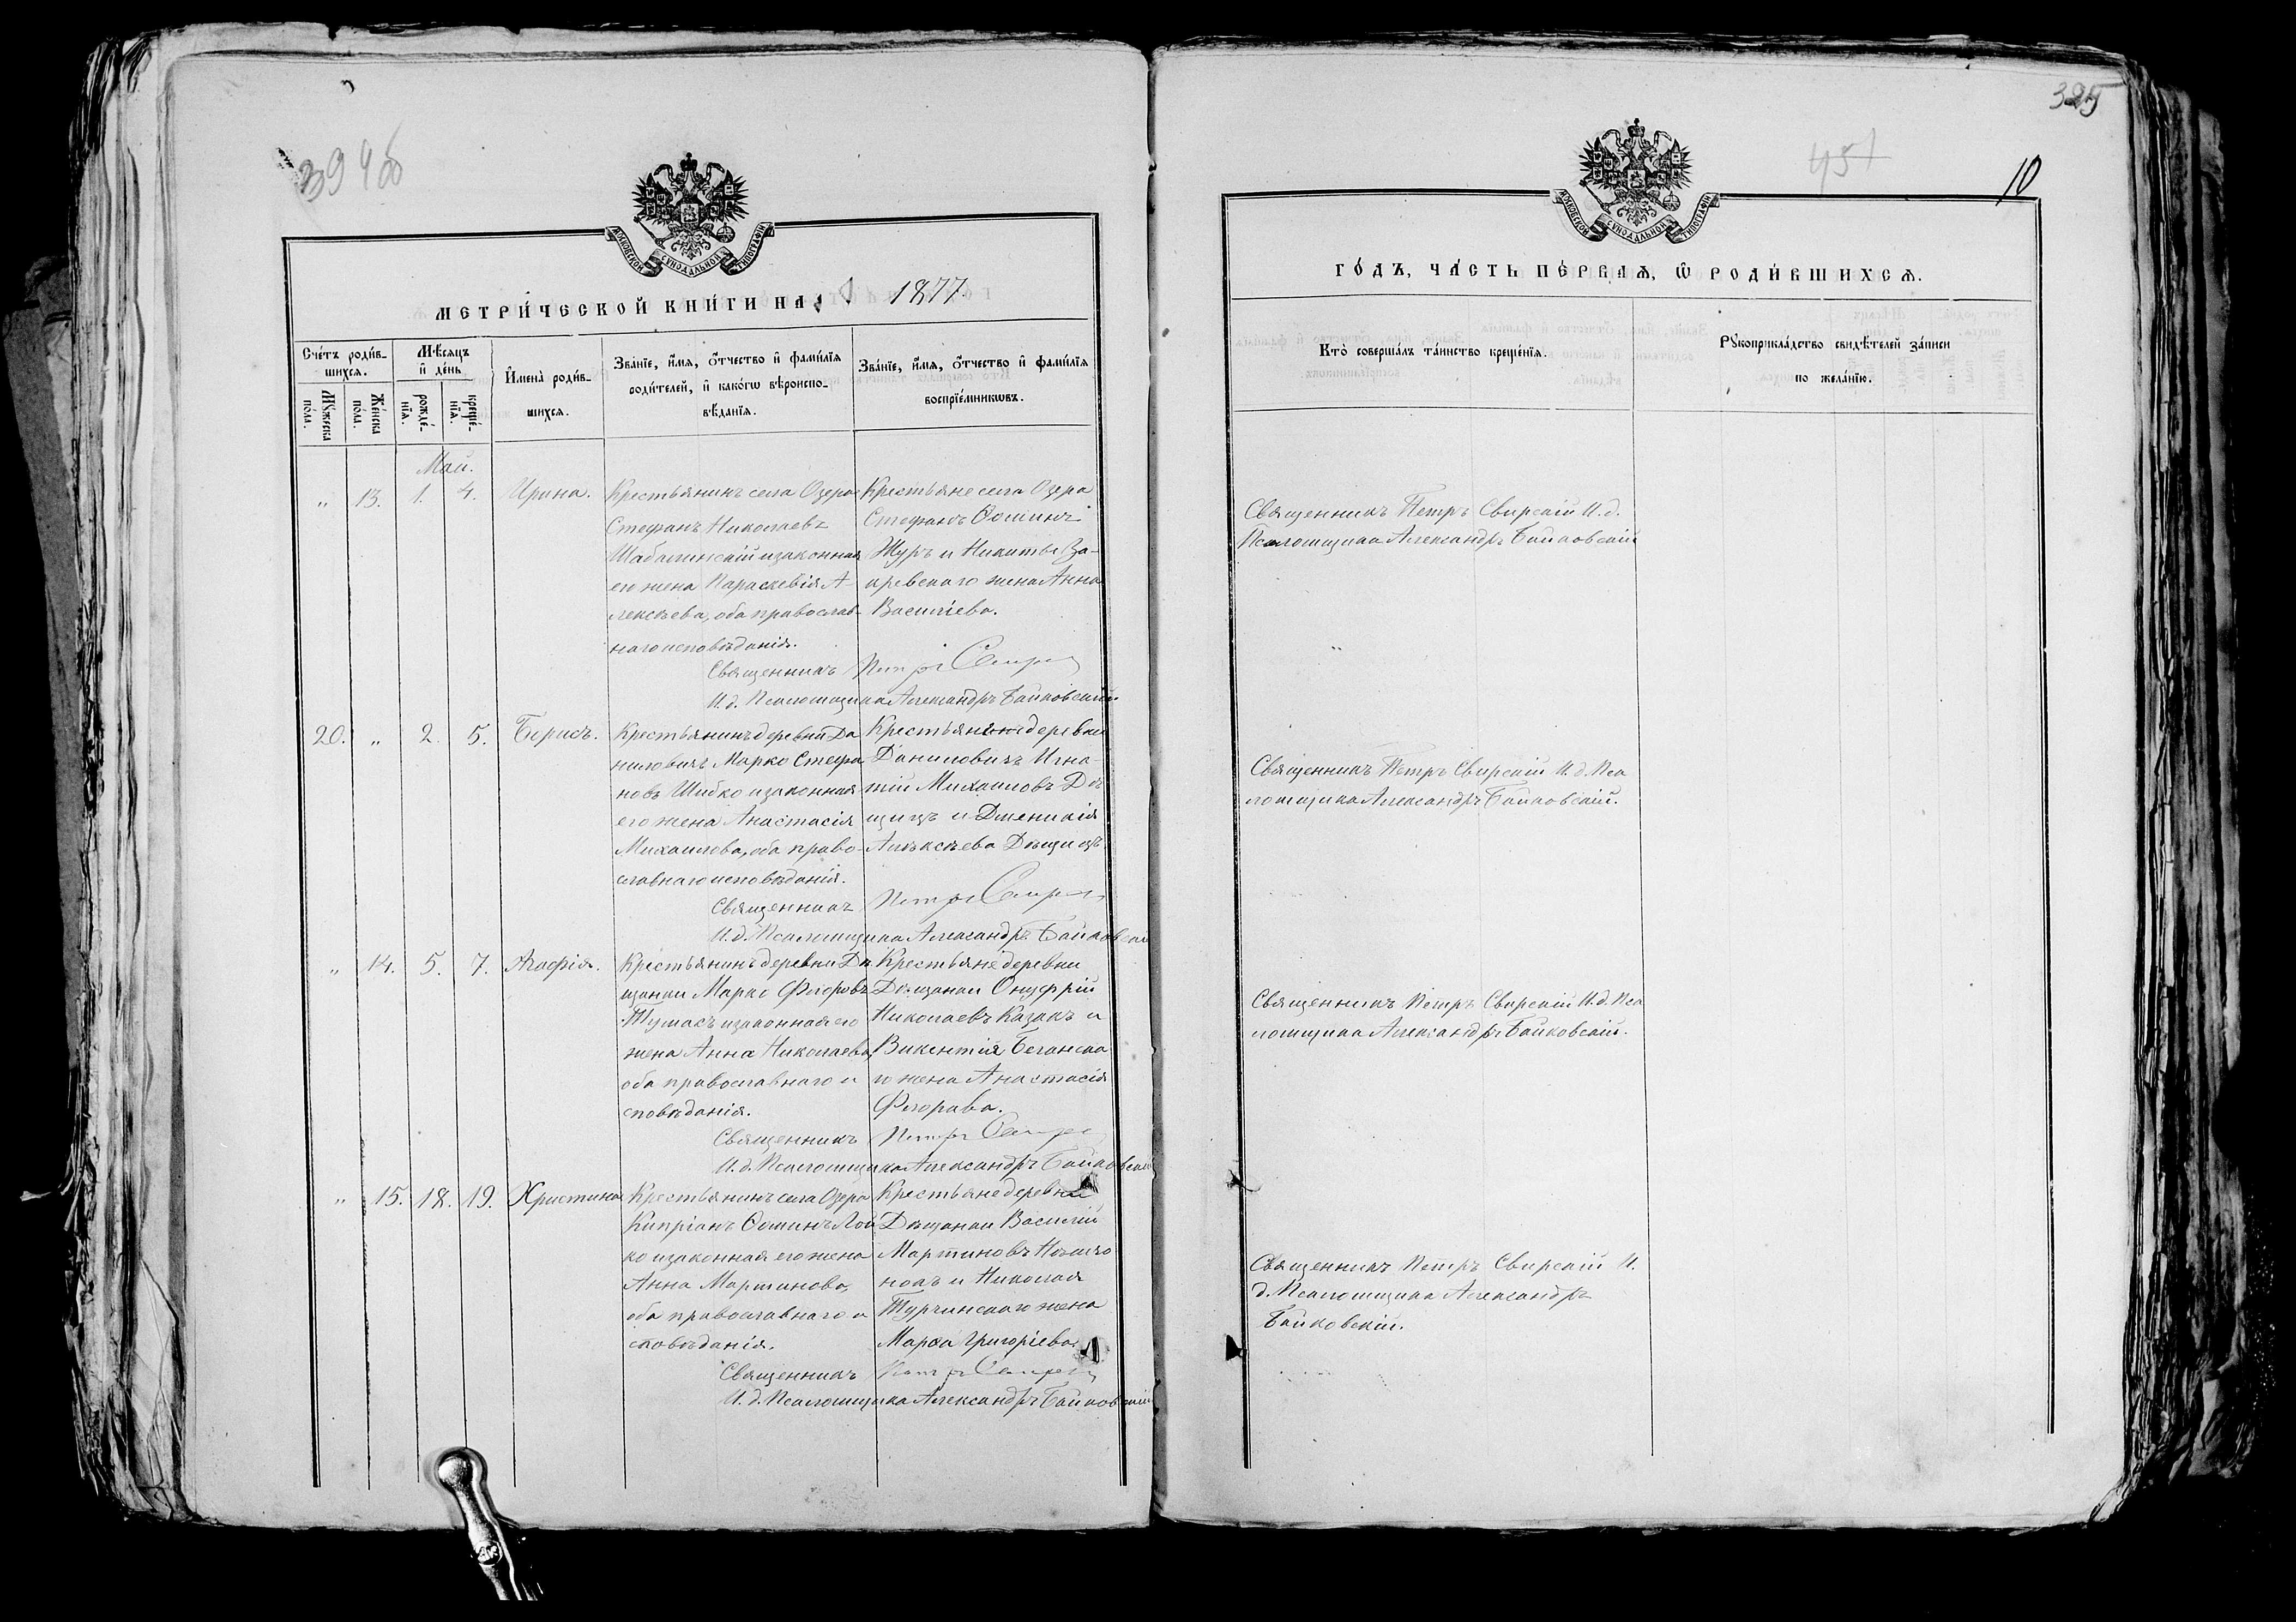 394об
МОСКОВСКОЙ СѴНОДАЛЬНОЙ ТИПОГРАФІИ
МЕТРИ́ЧЕСКОЙ КНИ́ГИ НА 1877.
Сче́тъ роди́в-
шихсѧ.
Мꙋ́жеска по́ла.
Же́нска по́ла.
Мѣ́сѧцъ и҆ де́нь
рожде́-нїѧ.
креще́-нїѧ.
И҆мена̀ роди́в-
шихсѧ.
Зва́нїе, и҆́мѧ, ѻ҆́тчество и҆ фами́лїѧ
роди́телей, и҆ како́гѡ вѣроиспо-
вѣ́данїѧ.
Зва́нїе, и҆́мѧ, ѻ҆́тчество и҆ фами́лїѧ
воспрїе́мникѡвъ.
Май.
„ 13. 1. 4. Ирина.
Крестьянинъ села Озера
Стефанъ Николаевъ
Шабалинскій и законная
его жена Параскевія А-
лексѣева, оба православ-
наго исповѣданія.
Крестьяне села Озера
Стефанъ Ѳоминъ
Журъ и Никиты За-
аревскаго жена Анна
Василіева.
Священникъ Петръ Свирскій
И.д. Псаломщика Александръ Байковскій
20. „ 2. 5. Борисъ.
Крестьянинъ деревни Да
ниловичъ Марко Стефа
новъ Шибко и законная
его жена Анастасія
Михаилова, оба право-
славнаго исповѣданія.
Крестьяне деревни
Даниловичъ Игна-
тій Михаиловъ Дѣ
щицъ и
Алѣксѣева Дѣщицъ
Священникъ Петръ Свирскій
И.д. Псаломщика Александръ Байковскій
„ 14. 5. 7. Агафія.
Крестьянинъ деревни Дѣ
щанки Марко Флоровъ
Тумасъ и законная его
жена Анна Николаева,
оба православнаго и
сповѣданія.
Крестьяне деревни
Дѣщанки Онуфрій
Николаевъ Казакъ и
Викентія Беганска
го жена Анастасія
Флорава.
Священникъ Петръ Свирскій
И.д. Псаломщика Александръ Байковскій
„ 15. 18. 19. Христина
Крестьянинъ села Озера
Кипріанъ Ѳоминъ Лой
ко и законная его жена
Анна Мартинова,
оба православнаго и
сповѣданія.
Крестьяне деревни
Дѣщанки Василій
Мартиновъ
нокъ и Николая
Турчинскаго жена
Марѳа Григоріева.
Священникъ Петръ Свирскій
И.д. Псаломщика Александръ Байковскій
395
451
10
МОСКОВСКОЙ СѴНОДАЛЬНОЙ ТИПОГРАФІИ
ГО́ДЪ, ЧА́СТЬ ПЕ́РВАѦ, Ѽ РОДИ́ВШИХСѦ.
Кто̀ соверша́лъ та́инство креще́нїѧ.
Рꙋкоприкла́дство свидѣ́телей за́писи
по жела́нїю.
Священникъ Петръ Свирскій И.д.
Псаломщика Александръ Байковскій
Священникъ Петръ Свирскій И.д. Пса
ломщика Александръ Байковскій.
Священникъ Петръ Свирскій И.д. Пса
ломщика Александръ Байковскій.
Священникъ Петръ Свирскій И.
д. Псаломщика Александръ
Байковскій.